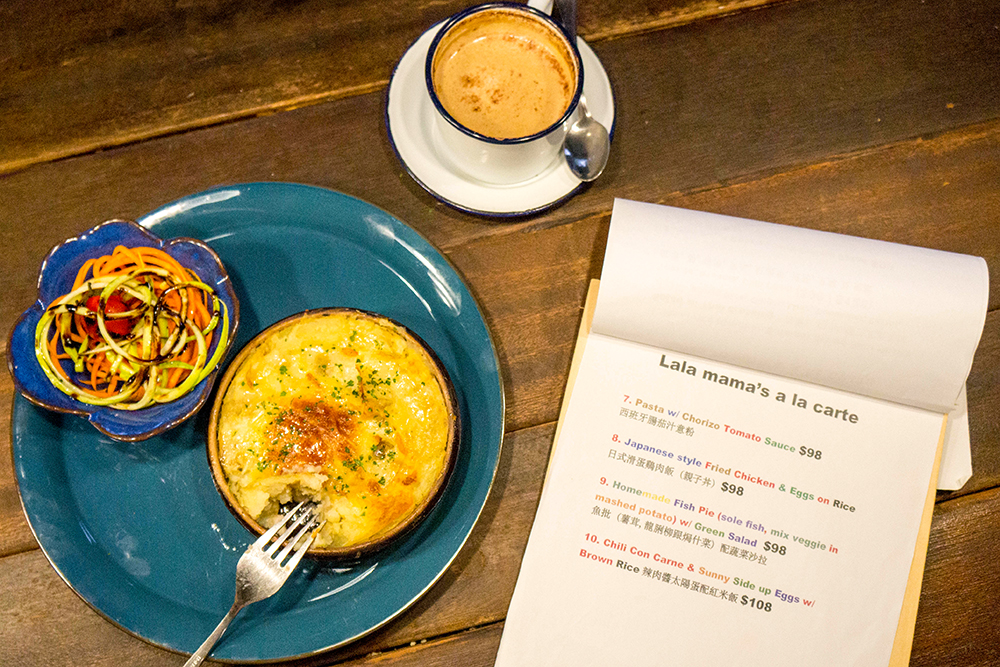 Lala mama's a la carte
7. Pasta w/ Chorizo Tomato Sauce $98
西班牙腸茄汁意粉
8. Japanese style Fried Chicken & Eggs on Rice
日式滑蛋鷄肉飯（親子丼）$98
9. Homemade Fish Pie (sole fish, mix veggie in
mashed potato) w/ Green Salad $98
魚批（薯茸, 龍脷柳跟焗什菜）配蔬菜沙拉
10. Chili Con Carne & Sunny Side up Eggs w/
Brown Rice 辣肉醬太陽蛋配紅米飯 $108